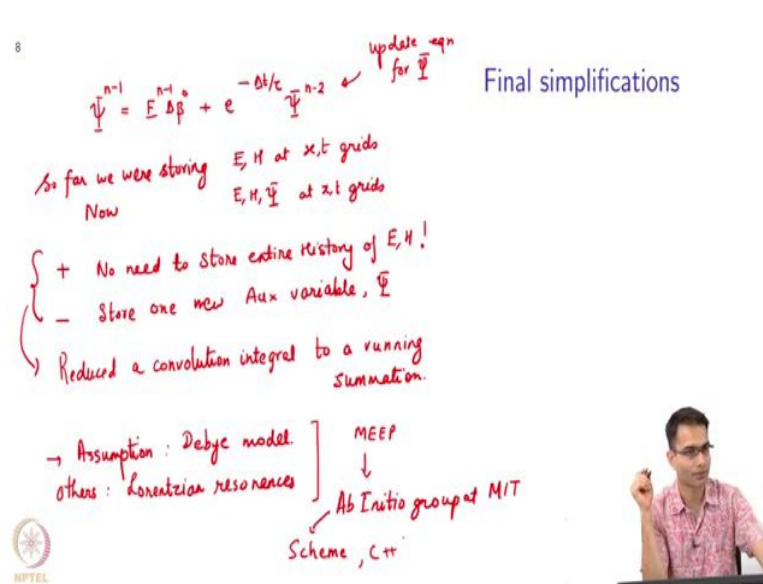 8
Final simplifications
update eqn
for Ψ̄
Ψ̄ⁿ⁻¹ = Eⁿ⁻¹ Δβ⁰ + e^(-Δt/τ) Ψ̄ⁿ⁻²
So far we were storing E, H at x,t grids
Now E, H, Ψ̄ at x,t grids
+ No need to store entire History of E, H!
− Store one new Aux variable, Ψ̄
Reduced a convolution integral to a running
summation.
→ Assumption : Debye model.
others : Lorentzian resonances
MEEP
↓
Ab Initio group at MIT
Scheme, C++
NPTEL